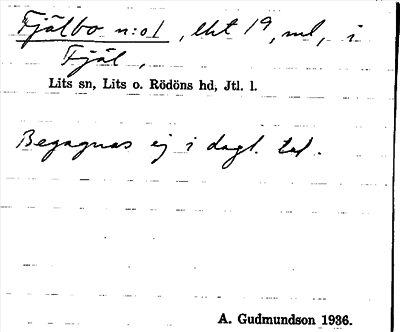 Fjälbo n:o 1, ekt 19, ml, i
Fjäl,
Lits sn, Lits o. Rödöns hd, Jtl. l.
Begagnas ej i dagl. tal.
A. Gudmundson 1936.